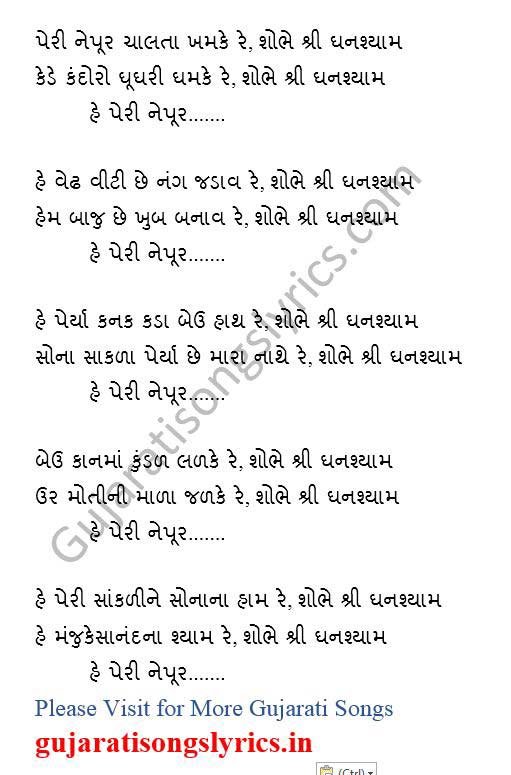 પેરી નેપૂર ચાલતા ખમકે રે, શોભે શ્રી ઘનશ્યામ
કેડે કંદોરો ઘૂઘરી ઘમકે રે, શોભે શ્રી ઘનશ્યામ
હે પેરી નેપૂર.......
હે વેઢ વીટી છે નંગ જડાવ રે, શોભે શ્રી ઘનશ્યામ
હેમ બાજુ છે ખુબ બનાવ રે, શોભે શ્રી ઘનશ્યામ
હે પેરી નેપૂર.......
હે પેર્યા કનક કડા બેઉ હાથ રે, શોભે શ્રી ઘનશ્યામ
સોના સાકળા પેર્યા છે મારા નાથે રે, શોભે શ્રી ઘનશ્યામ
હે પેરી નેપૂર.......
બેઉ કાનમાં કુંડળ લળકે રે, શોભે શ્રી ઘનશ્યામ
ઉર મોતીની માળા જળકે રે, શોભે શ્રી ઘનશ્યામ
હે પેરી નેપૂર.......
હે પેરી સાંકળીને સોનાના હામ રે, શોભે શ્રી ઘનશ્યામ
હે મંજુકેસાનંદના શ્યામ રે, શોભે શ્રી ઘનશ્યામ
હે પેરી નેપૂર.......
Please Visit for More Gujarati Songs
gujaratisongslyrics.in
(Ctrl)
Gujaratisongslyrics.com